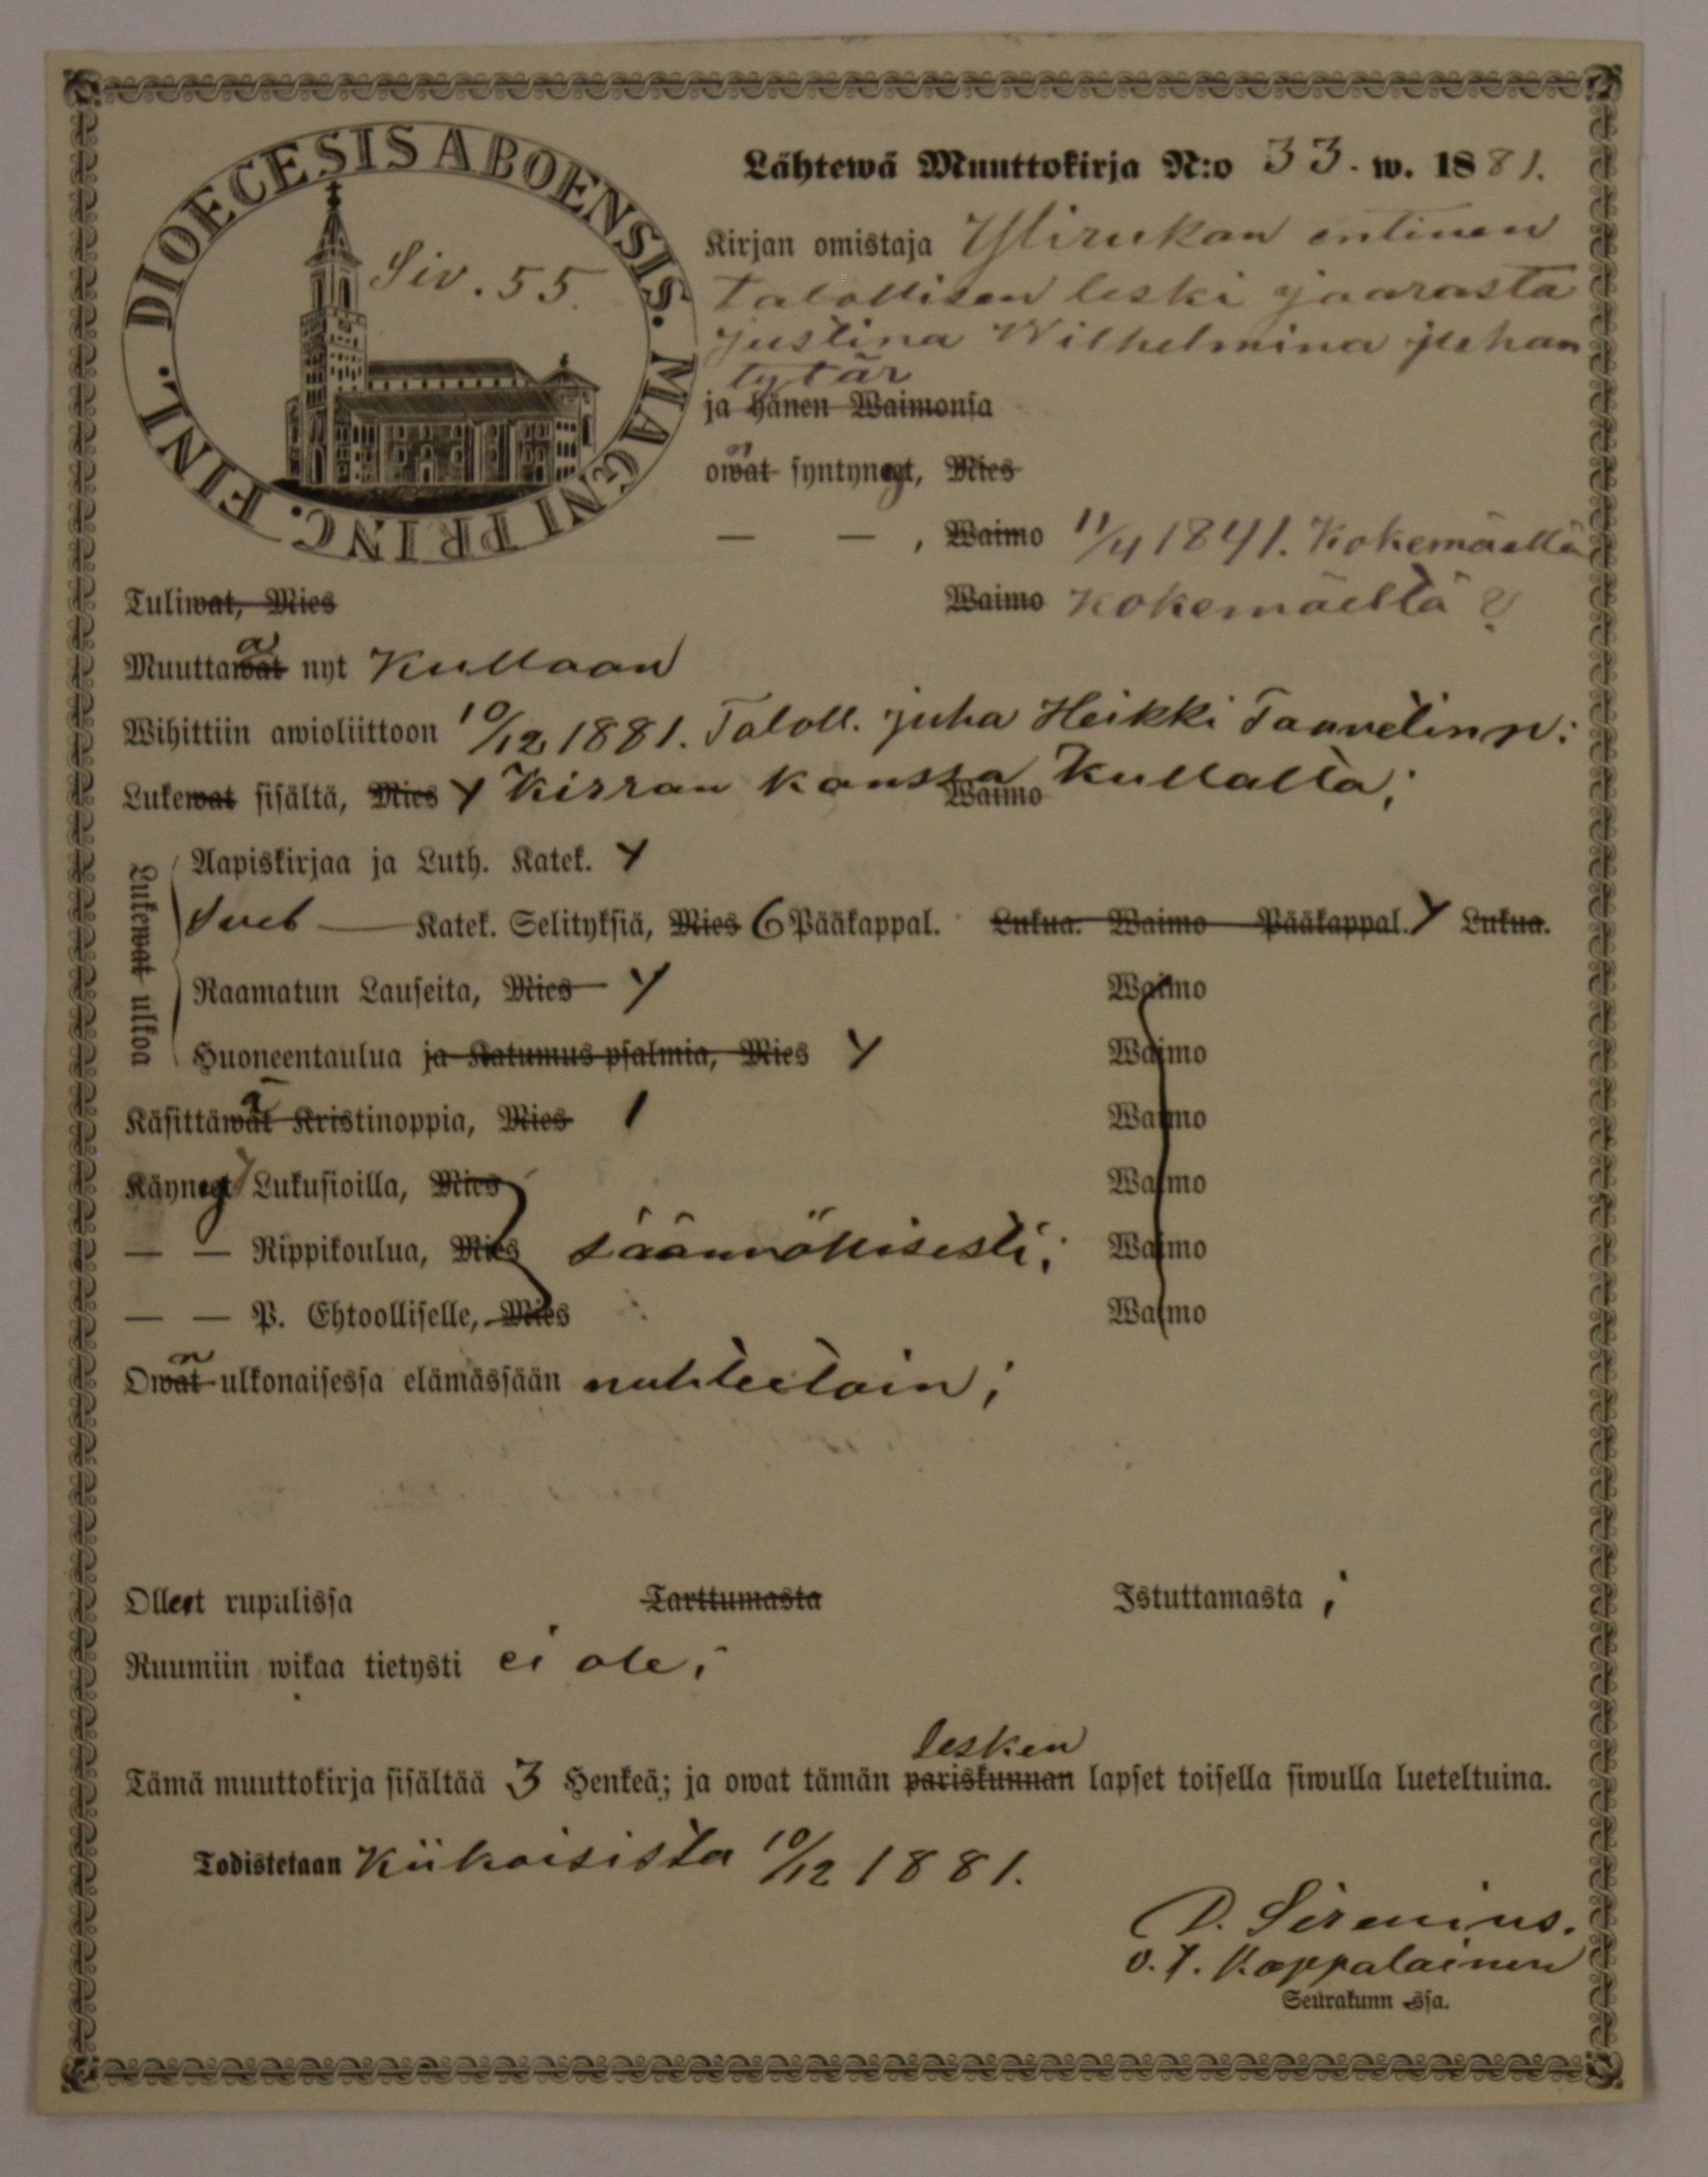 DIOECESIS ABOENSIS. MAGNI PRINC. FINL.
Siv. 55.
Lähtewä Muuttokirja N:o 33. w. 1881.
Kirjan omistaja Ylirukan entinen
talollisen leski Jaarasta
Justina Wilhelmina Juhan
tytär
ja hänen Waimonsa
n
owat syntynyt, Mies
— — , Waimo 11/4 1841. Kokemäellä
Tuliwat, Mies Waimo Kokemäeltä ?
a
Muuttawat nyt Kullaan
Wihittiin awioliittoon 10/12 1881. Taloll. Juha Heikki Taavetinp:
Lukewat sisältä, Mies Y Kirran kanssa Waimo Kullalta;
Lukewat ulkoa
Aapiskirjaa ja Luth. Katek. Y
Sveb — Katek. Selityksiä, Mies 6 Pääkappal. Lukua. Waimo Pääkappal. Y Lukua.
Raamatun Lauseita, Mies Y Waimo
Huoneentaulua ja Katumus psalmia, Mies Y Waimo
ä
Käsittäwät Kristinoppia, Mies 1 Waimo
Käynyt Lukusioilla, Mies Waimo
— — Rippikoulua, Mies säännöllisesti; Waimo
— — P. Ehtoolliselle, Mies Waimo
n
Owat ulkonaisessa elämässään nuhteetoin;
Ollect rupulissa Tarttumasta Istuttamasta ;
Ruumiin wikaa tietysti ei ole;
lesken
Tämä muuttokirja sisältää 3 Henkeä; ja owat tämän pariskunnan lapset toisella siwulla lueteltuina.
Todistetaan Kiikoisista 10/12 1881.
D. Sirenius.
v.t. Kappalainen
Seurakunn ssa.